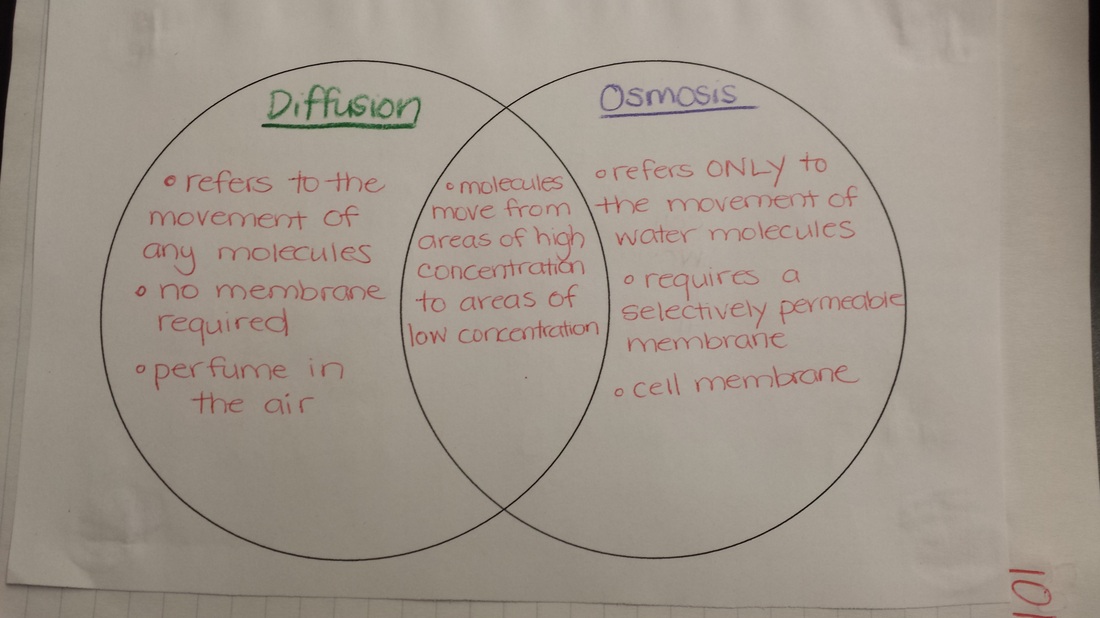 Diffusion
• refers to the
movement of
any molecules
• no membrane
required
• perfume in
the air
• molecules
move from
areas of high
concentration
to areas of
low concentration
Osmosis
• refers ONLY to
the movement of
water molecules
• requires a
selectively permeable
membrane
• cell membrane
101